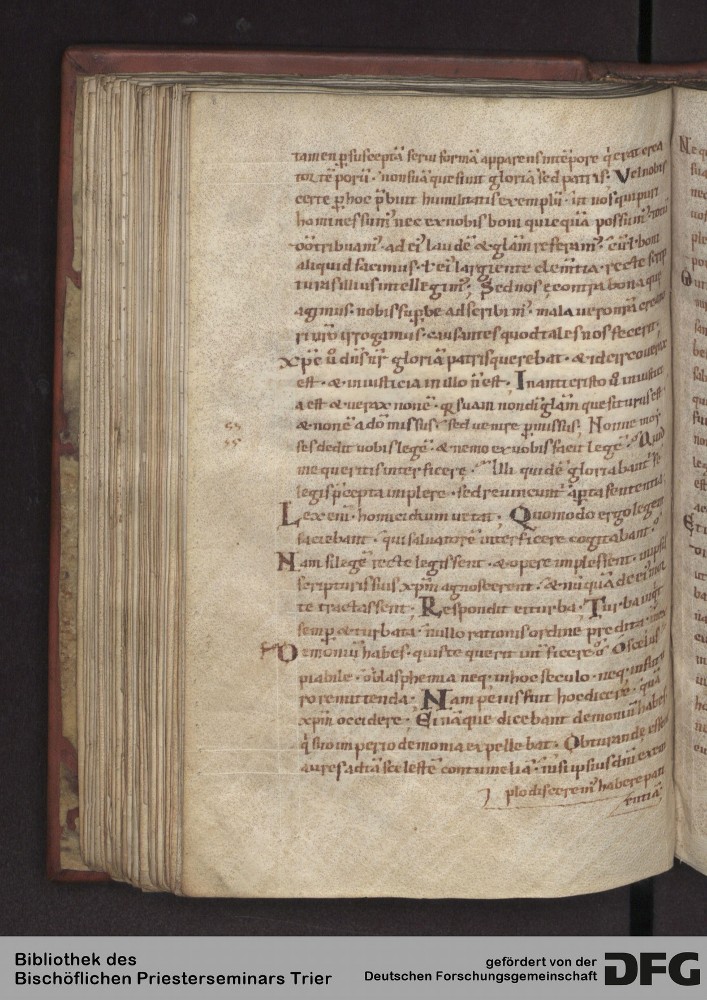 tamen p susceptā serui formā apparens intēpore q̇ erat crea
tor tēporū · non suā que siuit gloriā sed patris · Vel nobis
certe p hoc p̄buit humilitatis exemplū · ut nos qui puri
homines sum' nec ex nobis boni quicquā possum' · totū
aliquid facimus · t ei' largiente clem̄tia · recte scrip
turas illius intellegim'; Sed nos econtra bona que
agimus · nobis supbe adscribim' · mala uero nr̄a creato
ri nr̄o irrogamus · causantes quod tales nos fecerit;
xp̄c ū dn̄s nr̄ gloriā patris querebat · & idcirco uerax
est · & iniusticia in illo n̄ est; In anticristo ū iniustici
a est & uerax non ē · q suam non dī glām quesiturus est ·
& non ē a dō missus · sed uenire p̄missus; Nonne moy
ses dedit uobis legē · & nemo ex uobis facit legē · Quid
me queritis interficere · Illi quidē gloriabant' se
legis p̄cepta implere · sed reuincunt' apta sententia
Lex eni' · homicidium uetat; Quomodo ergo legem
faciebant · qui saluatorē interficere cogitabant ·
Nam si legē recte legissent · & opere implessent · in ipsis
scripturis suis xp̄m agnoscerent · & nūquā de ei' mor
te tractassent; Respondit ei turba; Turba inqt
semp & turbata · nullo rationis ordine predita ·
Demoniū habes · quis te querit int'ficere · O scelus
piabile · o blasphemia neq; in hoc seculo · neq; in futu
ro remittenda · Nam peius fuit hoc dicere · quā
xp̄m occidere · Eū nāque dicebant demoniū habere
q̇ suo imperio demonia expellebat · Obturande essent
aures ad tā scelestē contumeliā · nisi ipsius dn̄i exem
plo discerem' habere pati
entiā
Bibliothek des
Bischöflichen Priesterseminars Trier
gefördert von der
Deutschen Forschungsgemeinschaft
DFG